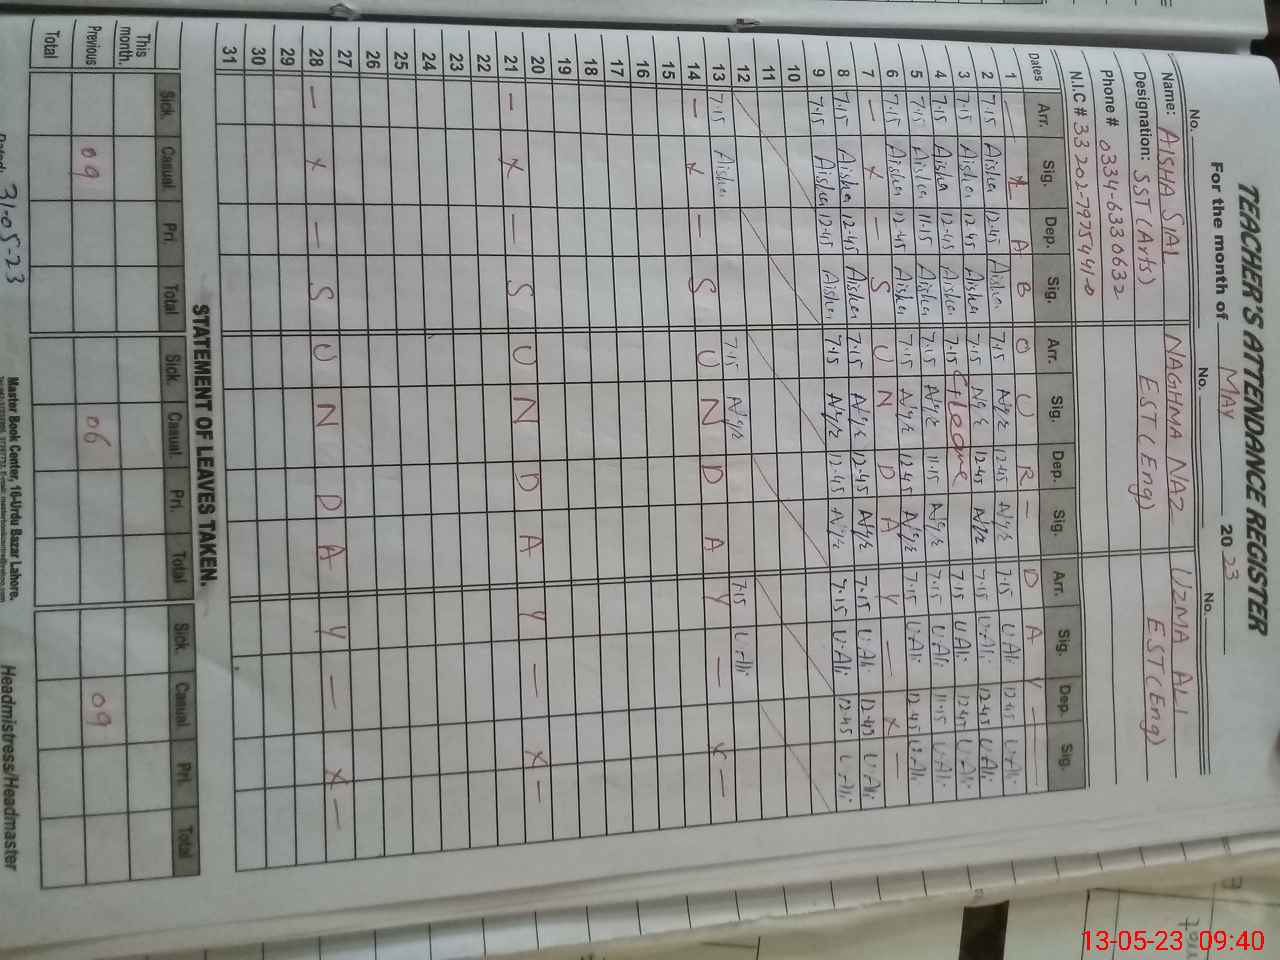 TEACHER'S ATTENDANCE REGISTER
For the month of MAY 2023
No. No. No.
Name: AISHA SIAL NAGHMA NAZ UZMA ALI
Designation: SST (Arts) EST (Eng) EST (Eng)
Phone # 0334-6330632
N.I.C # 33202-7975441-0
Dates Arr. Sig. Dep. Sig. Arr. Sig. Dep. Sig. Arr. Sig. Dep. Sig.
1 — x LABOUR - DAY —
2 7.15 Aisha 12.45 Aisha 7.15 12.45 7.15 U.Ali 12.45 U.Ali
3 7.15 Aisha 12.45 Aisha 7.15 12.45 7.15 U.Ali 12.45 U.Ali
4 7.15 Aisha 12.45 Aisha 7.15 C-leave 7.15 U.Ali 12.45 U.Ali
5 7.15 Aisha 11.15 Aisha 7.15 11.15 7.15 U.Ali 11.15 U.Ali
6 7.15 Aisha 12.45 Aisha 7.15 12.45 7.15 U.Ali 12.45 U.Ali
7 — x — SUNDAY — x —
8 7.15 Aisha 12.45 Aisha 7.15 12.45 7.15 U.Ali 12.45 U.Ali
9 7.15 Aisha 12.45 Aisha 7.15 12.45 7.15 U.Ali 12.45 U.Ali
10
11
12
13 7.15 Aisha 7.15 7.15 U.Ali
14 — x — SUNDAY — x —
15
16
17
18
19
20
21 — x — SUNDAY — x —
22
23
24
25
26
27
28 — x — SUNDAY — x —
29
30
31
STATEMENT OF LEAVES TAKEN.
Sick. Casual. Pri. Total Sick. Casual. Pri. Total Sick. Casual. Pri. Total
This month.
Previous 09 06 09
Total
31-05-23
Master Book Center, 16-Urdu Bazar Lahore.
Headmistress/Headmaster
13-05-23 09:40